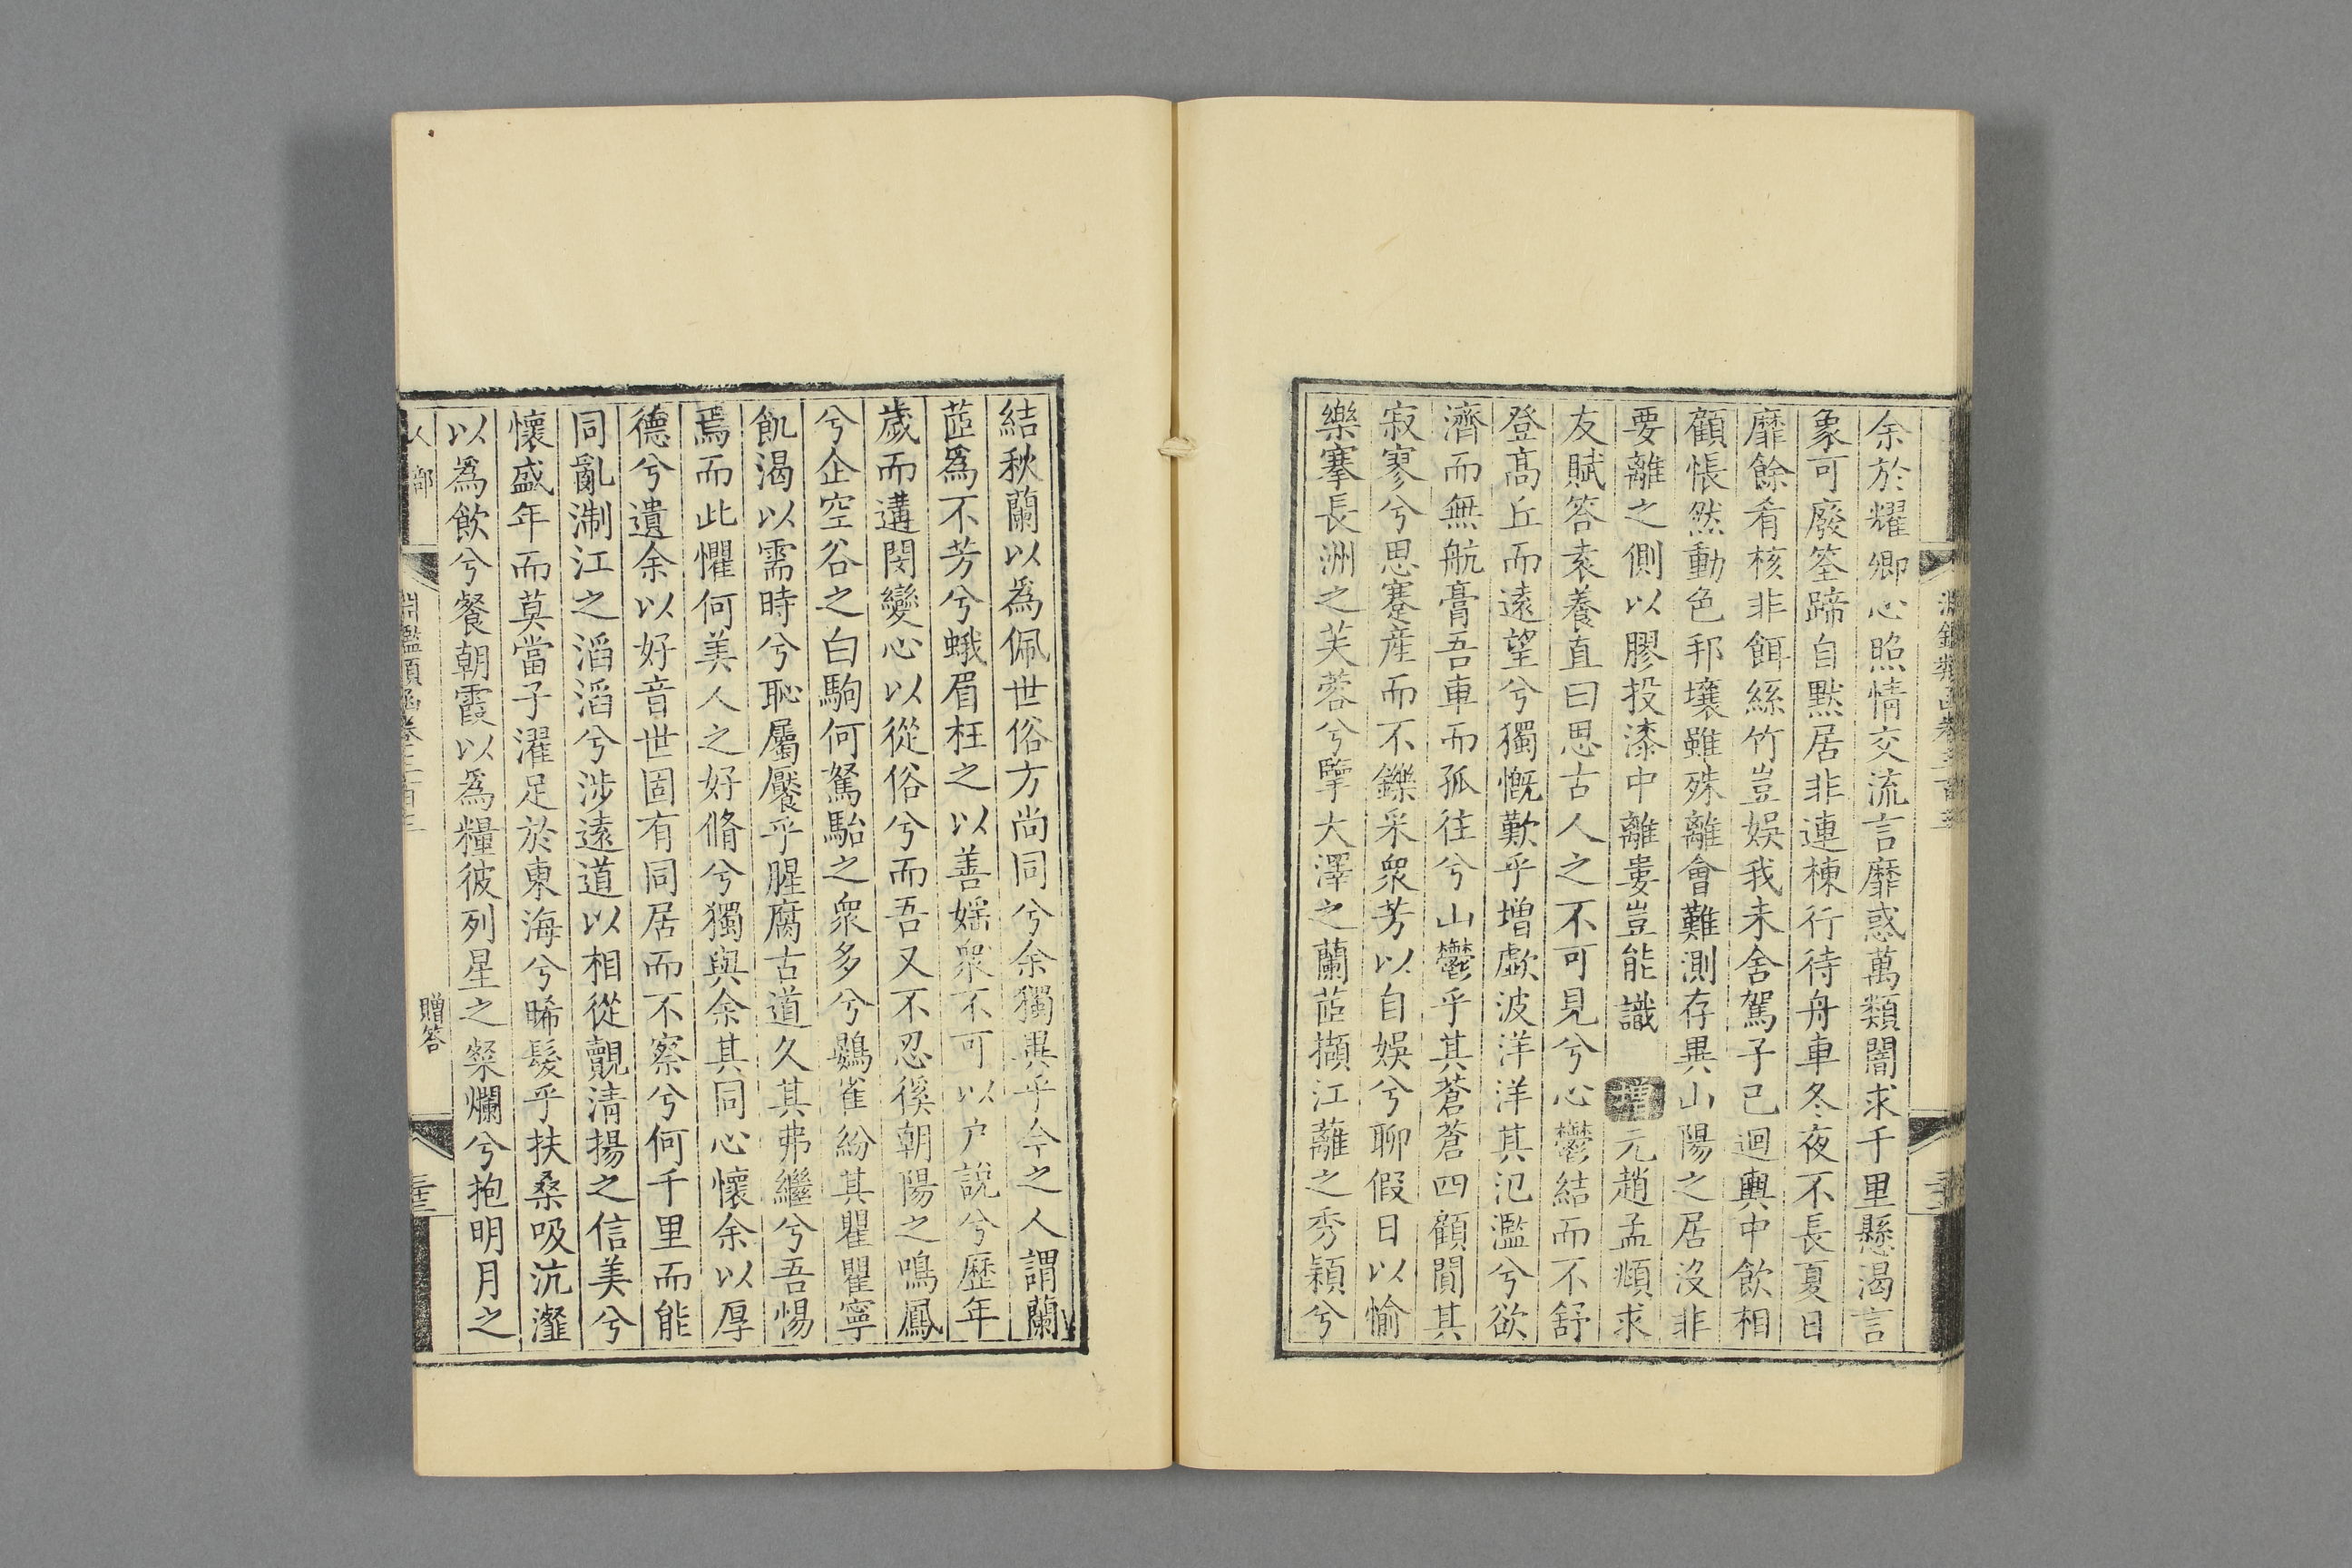 余於耀卿心照情交流言靡惑萬類闇求千里懸渴言
象可廢筌蹄自默居非連棟行待舟車冬夜不長夏日
靡餘肴核非餌絲竹豈娛我未舍駕子已迴輿中飲相
顧悵然動色邦壤雖殊離會難測存異山陽之居沒非
要離之側以膠投漆中離婁豈能識 增元趙孟頫求
友賦答袁養直曰思古人之不可見兮心鬱結而不舒
登高丘而遠望兮獨慨歎乎增歔波洋洋其氾濫兮欲
濟而無航膏吾車而孤往兮山鬱乎其蒼蒼四顧閴其
寂寥兮思蹇産而不鑠采衆芳以自娛兮聊假日以愉
樂搴長洲之芙蓉兮擥大澤之蘭茝擷江蘺之秀穎兮
結秋蘭以爲佩世俗方尚同兮余獨異乎今之人謂蘭
茝爲不芳兮蛾眉枉之以善婬衆不可以户説兮歷年
歲而遘閔變心以從俗兮而吾又不忍徯朝陽之鳴鳳
兮企空谷之白駒何駑駘之衆多兮鷃雀紛其瞿瞿寧
飢渴以需時兮恥屬饜乎腥腐古道久其弗繼兮吾惕
焉而此懼何美人之好脩兮獨與余其同心懷余以厚
德兮遺余以好音世固有同居而不察兮何千里而能
同亂淛江之滔滔兮涉遠道以相從覿清揚之信美兮
懷盛年而莫當子濯足於東海兮晞髮乎扶桑吸沆瀣
以爲飲兮餐朝霞以爲糧彼列星之粲爛兮抱明月之
人部 淵鑑類函卷三百三 贈答